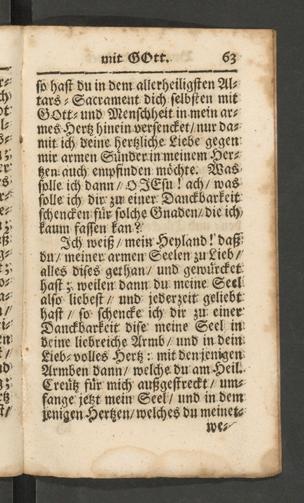 mit GOtt. 63
so hast du in dem allerheiligsten Al-
tars-Sacrament dich selbsten mit
GOtt- und Menschheit in mein ar-
mes Hertz hinein versencket / nur da-
mit ich deine hertzliche Liebe gegen
mir armen Sünder in meinem Her-
tzen auch empfinden möchte. Was
solle ich dann / O JEsu! ach / was
solle ich dir zu einer Danckbarkeit
schencken für solche Gnaden / die ich
kaum fassen kan?
Ich weiß / mein Heyland! daß
du / meiner armen Seelen zu Lieb /
alles dises gethan / und gewürcket
hast; weilen dann du meine Seel
also liebest / und jederzeit geliebt
hast / so schencke ich dir zu einer
Danckbarkeit dise meine Seel in
deine liebreiche Armb / und in dein
Lieb-volles Hertz: mit den jenigen
Armben dann / welche du am Heil.
Creütz für mich außgestreckt / um-
fange jetzt mein Seel / und in dem
jenigen Hertzen / welches du meinet-
we-